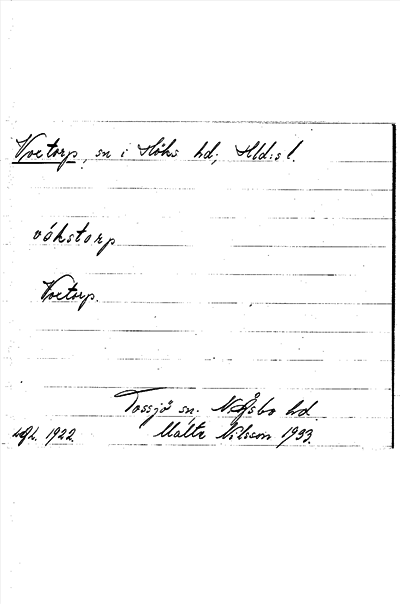 Voxtorp, sn i Höks hd; Hld:s l.
vókstorp
Voxtorp.
Tossjö sn. N. Åsbo hd.
1922. Malte Nilsson 1933.